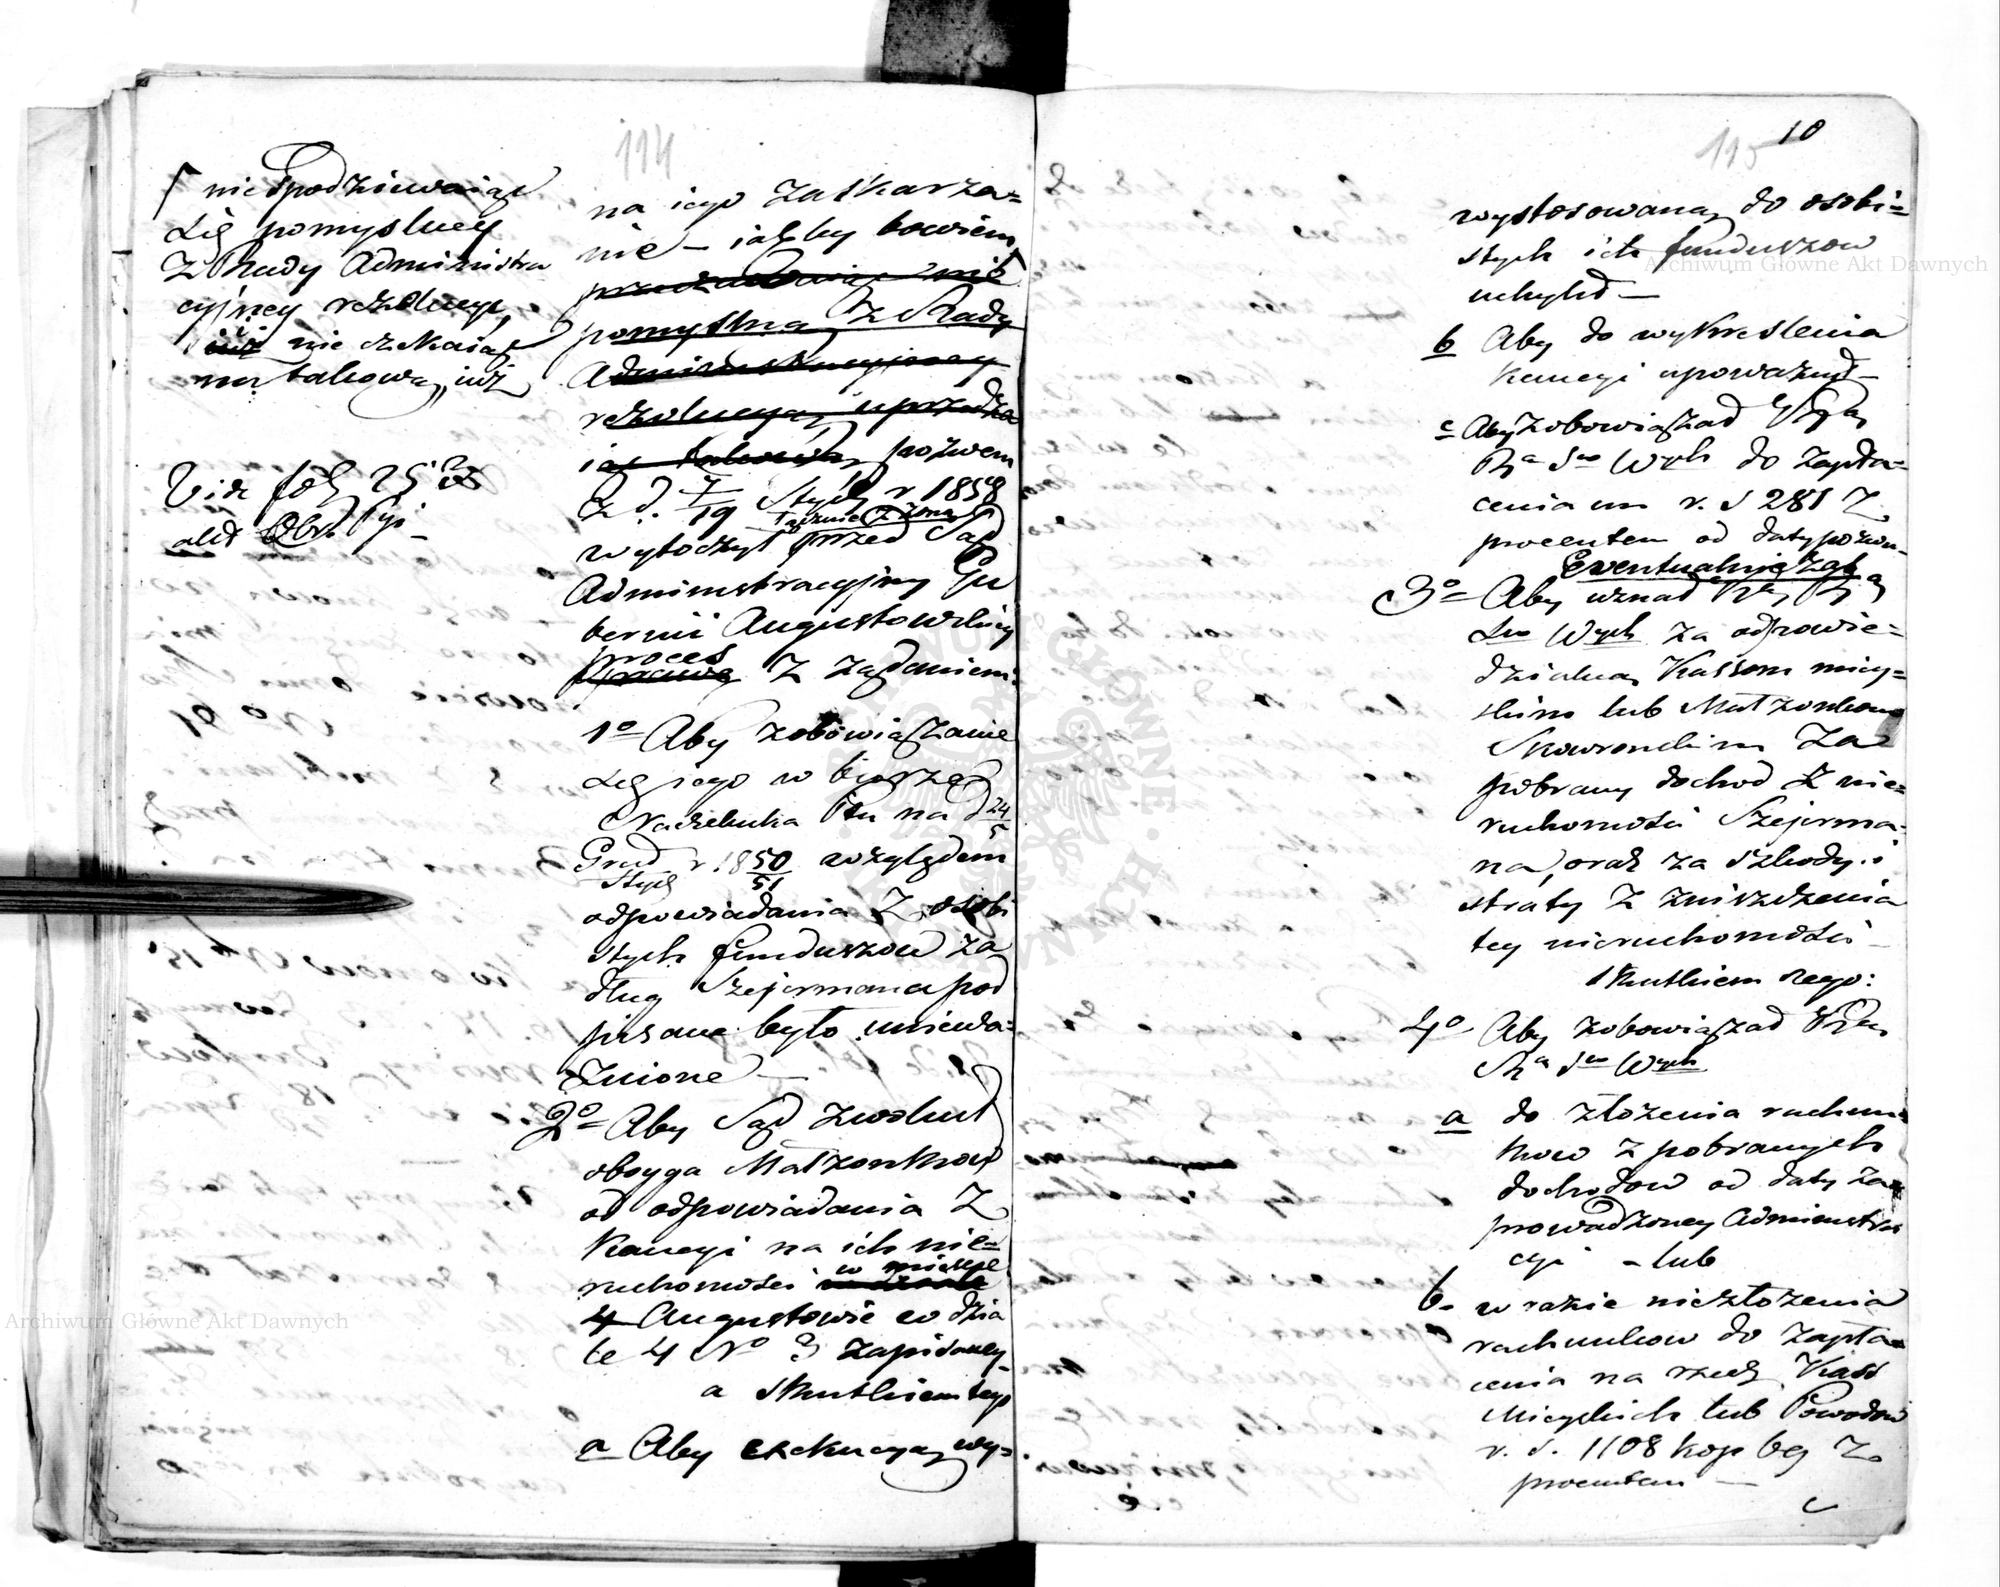 114
⌈ niespodziewaiąc
się pomyslney
z Rady Administra
cyjney rezolucyi,
nie czekaiąc
na takową, już
Vide fol 25
ald Obr.
na iego zaskarza=
nie – iakby bowiem
pomyslną z Rady
Administracyjney
rezolucyą uprzedza
iąc takową pozwem
z d. 7/19 Stycz r 1858
łącznie z żoną
wytoczył przed Sąd
Administracyjny Gu
bernii Augustowskiey
proces
sprawę z żądaniem:
1o Aby zobowiązanie
się jego w biorze
Naczelnika Ptu na d 24/5
Grud/Stycz r 1850/51 względem
odpowiadania z osobi
stych funduszow za
dług Szejermana pod
pisane było unieważ=
nione —
2o= Aby Sąd zwolnił
oboyga Małżonkow
od odpowiadania z
kaucyi na ich nie=
w miescie
ruchomości
Augustowie w dzia
le 4 No 3 zapisaney
a skutkiem tego
a Aby exekucyą wy=
115 10
wystosowaną do osobi=
stych ich funduszow
uchylił —
b Aby do wykreslenia
kaucyi upoważnił —
c Aby zobowiązał
Wych do zapła=
cenia im r. s 281 z
procentem od daty pozwu
Eventualnie zaś
3o= Aby uznał
Wych za odpowie=
dzialną Kassom miey=
skim lub Małżonkom
Skowronskim za
pobrany dochod z nie=
ruchomości Szejerma=
na, oraz za szkody i
straty z zniszczenia
tey nieruchomości —
skutkiem czego:
4o Aby zobowiązał
Wych
a do złożenia rachun
kow z pobranych
dochodow od daty za
prowadzoney Administra
cyi – lub
b. w razie niezłożenia
rachunkow do zapła=
cenia na rzecz Kass
Mieyskich lub Powodow
r. s. 1108 kop 69 z
procentem —
Archiwum Główne Akt Dawnych
Archiwum Główne Akt Dawnych